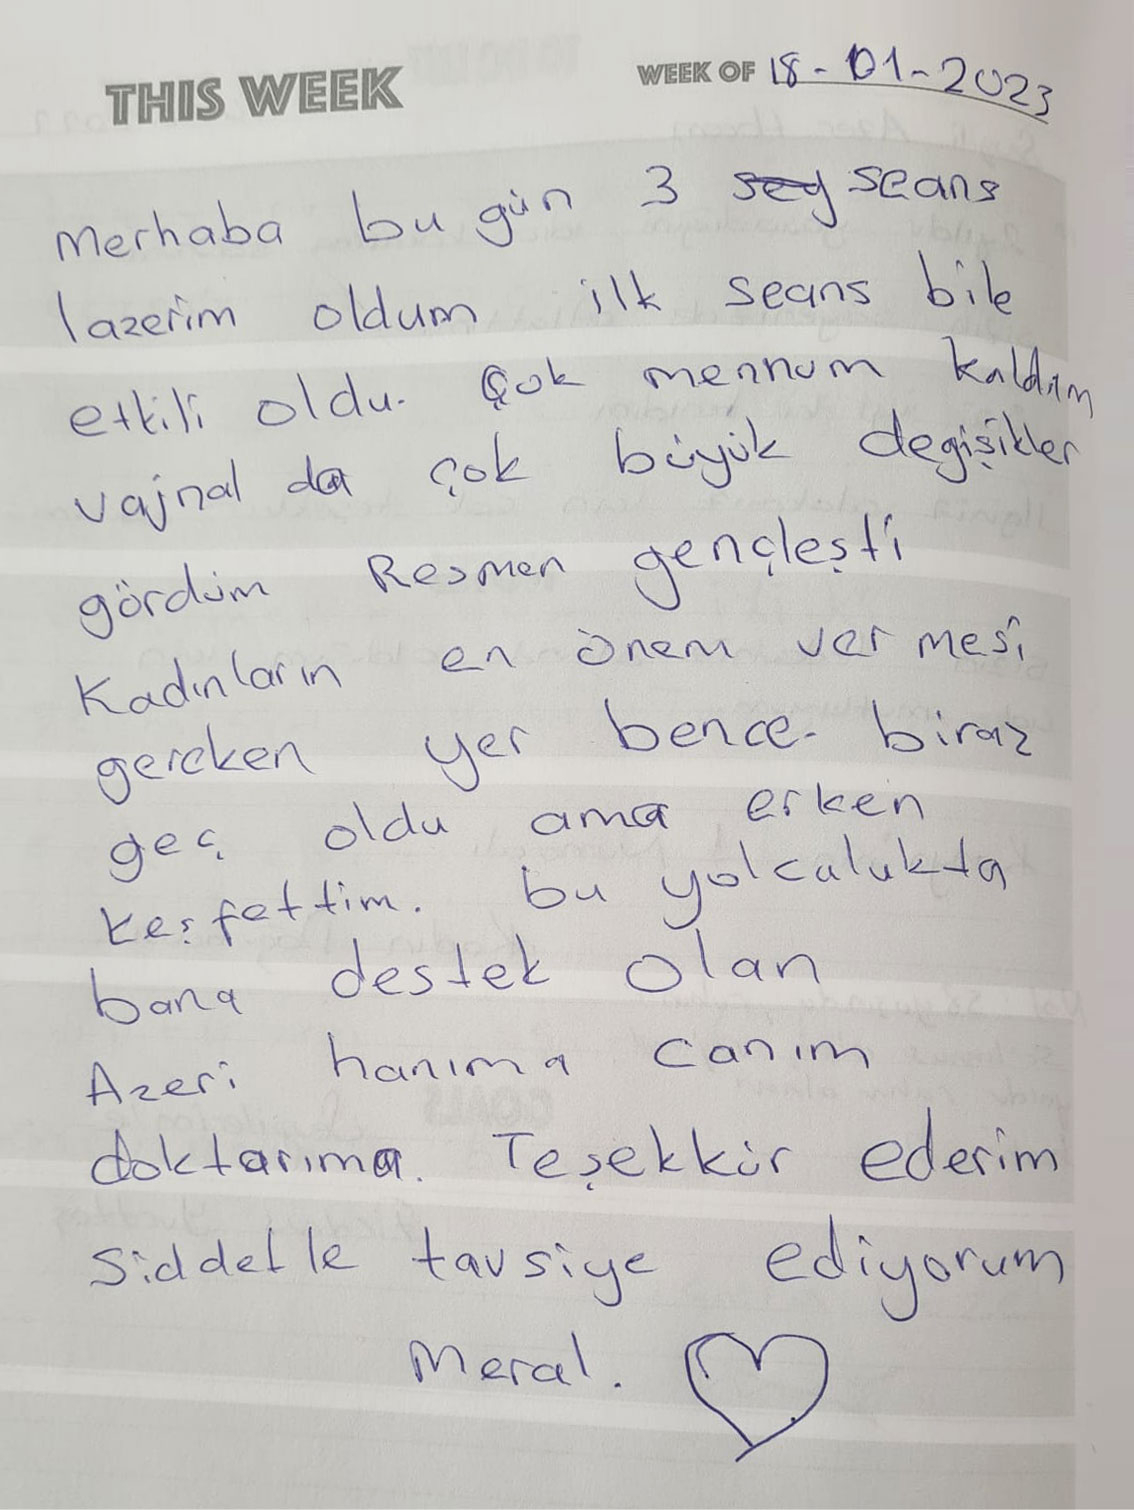 THIS WEEK WEEK OF 18-01-2023
merhaba bu gün 3 seg seans
lazerim oldum ilk seans bile
etkili oldu. Çok mennum kaldım
vajnal da çok büyük degişikler
gördüm Resmen gençleşti
Kadınların en önem ver mesi
gereken yer bence. biraz
geç oldu ama erken
keşfettim. bu yolculukta
bana destek olan
Azeri hanıma canım
doktarıma. Teşekkür ederim
siddetle tavsiye ediyorum
Meral.